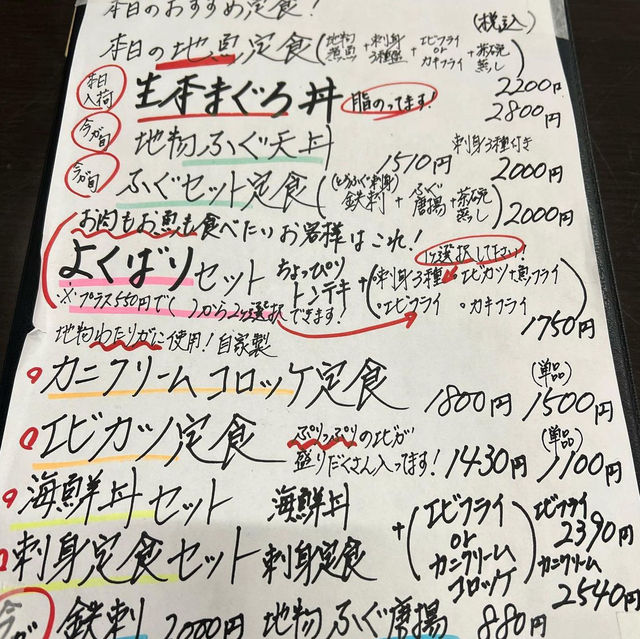 本日のおすすめ定食! (税込)
本日の地魚定食(地物煮魚+刺身3種盛+エビフライorカキフライ+茶碗蒸し) 2200円
本日入荷 生本まぐろ丼 脂のってます! 2800円
今が旬 地物ふぐ天丼 1510円 刺身3種付き 2000円
今が旬 ふぐセット定食(とらふぐ刺身)鉄刺+ふぐ唐揚+茶碗蒸し) 2000円
お肉もお魚も食べたいお客様はこれ!
よくばりセット ちょっぴりトンテキ+(・刺身3種 ・エビカツ+魚フライ ・エビフライ ・カキフライ) 1つ選択して下さい!
※プラス550円で( )から2つ選択できます! 1750円
地物わたりがに使用!自家製
カニクリームコロッケ定食 1800円 (単品) 1500円
エビカツ定食 ぷりっぷりのエビが盛りだくさん入ってます! 1430円 (単品) 1100円
海鮮丼セット 海鮮丼
刺身定食セット 刺身定食
+(エビフライorカニクリームコロッケ) エビフライ 2390円
カニクリーム 2540円
今が 鉄刺 2000円 地物ふぐ唐揚 880円